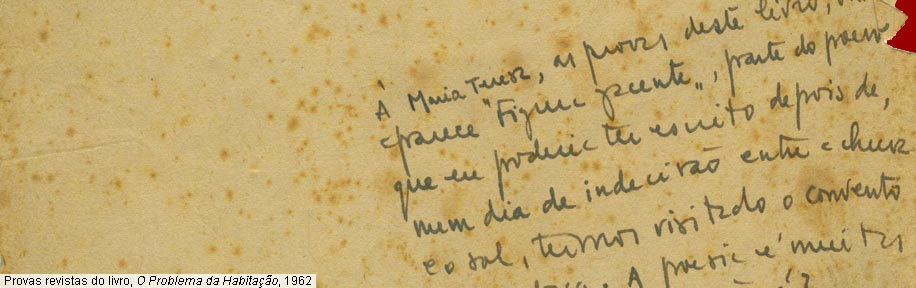 À Maria Teresa, as provas deste livro,
aparece "Figura jacente", parte do poema
que eu poderia ter escrito depois de,
num dia de indecisão entre a chuva
e o sol, termos visitado o convento
A poesia é muitas
Provas revistas do livro, O Problema da Habitação, 1962